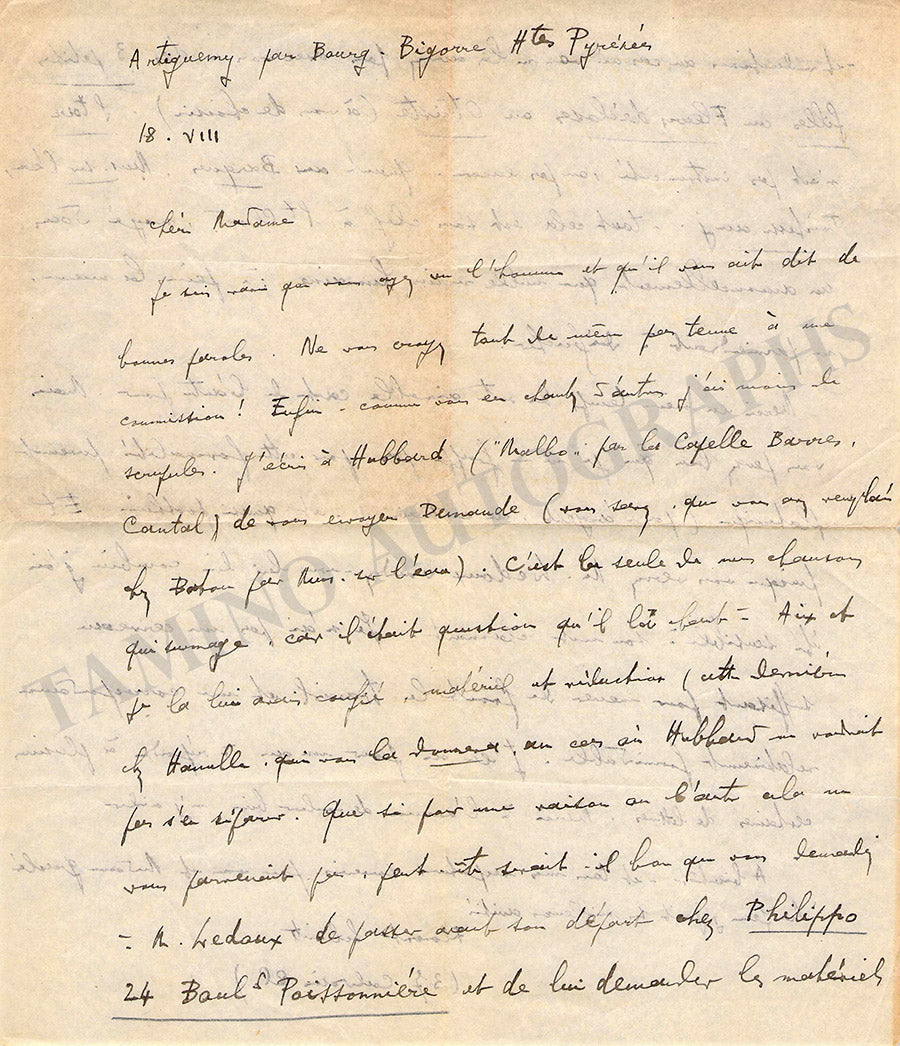 Artiguemy par Bourg. Bigorre Htes Pyrénées
18. VIII
chère Madame
Je suis ravi que vous ayez vu l'homme et qu'il vous ait dit de
bonnes paroles. Ne vous croyez tout de même pas tenue à une
commission! Enfin - comme vous en chantez d'autres j'ai moins de
scrupules. J'écris à Hubbard ("Malbo" par la Capelle Barres,
Cantal) de vous envoyer Demande (vous savez, que vous avez
chez par Mus. sur l'eau). C'est la seule de mes chansons
qui surnage, car il était question qu'il la chante - Aix et
je la lui avais confié, matériel et réduction (cette dernière
chez Hamelle, qui vous la donnera, au cas où Hubbard ne voudrait
pas s'en séparer. Que si pour une raison ou l'autre cela ne
vous parvenait pas, peut-être serait-il bon que vous demandiez
- M. Ledoux de passer avant son départ chez Philippo
24 Boul<sup>d</sup> Poissonnière et de lui demander les matériels
TAMINO AUTOGRAPHS